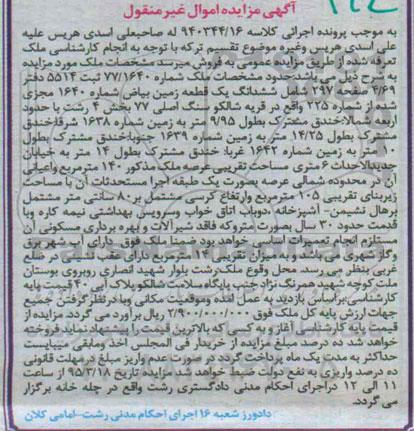 آگهی مزایده اموال غیر منقول
به موجب پرونده اجرائی کلاسه ۹۴۰۳۴۴/۱۶ له صاحبعلی اسدی هریس علیه
علی اسدی هریس وغیره موضوع تقسیم ترکه با توجه به انجام کارشناسی ملک
تعرفه شده از طریق مزایده عمومی به فروش میرسد مشخصات ملک مورد مزایده
به شرح ذیل می باشد: حدود مشخصات ملک شماره ۷۷/۱۶۴۰ ثبت ۵۵۱۴ دفتر
۴/۶۹ صفحه ۲۹۷ شامل ششدانگ یک قطعه زمین بیاض شماره ۱۶۴۰ مجزی
شده از شماره ۲۲۵ واقع در قریه شالکو سنگ اصلی ۷۷ بخش ۴ رشت با حدود
اربعه شمالا: خندق مشترک بطول ۹/۹۵ متر به زمین شماره ۱۶۳۸ شرقا خندق
مشترک بطول ۱۴/۲۵ متر به زمین شماره ۱۶۳۹ جنوبا خندق مشترک بطول
۱۰ متر به زمین شماره ۱۶۴۲ غربا: خندق مشترک بطول ۱۴ متر به خیابان
جدیدالاحداث ۶ متری مساحت تقریبی عرصه ملک مذکور ۱۴۰ مترمربع واعیانی
آن در محدوده شمالی عرصه بصورت یک طبقه اجرا مستحدثات آن با مساحت
زیربنای تقریبی ۱۰۵ مترمربع وارتفاع کرسی مشتمل بر ۸۰ سانتی متر مشتمل
برهال نشیمن- آشپزخانه دوباب اتاق خواب وسرویس بهداشتی نیمه کاره وبا
قدمت حدود ۳۰ سال بصورت متروکه فاقد شیرآلات و بهره برداری مسکونی آن
مستلزم انجام تعمیرات اساسی خواهد بود ضمنا ملک فوق دارای آب شهر برق
وگاز شهری می باشد و به میزان تقریبی ۱۴ مترمربع دارای عقب نشینی در ضلع
غربی بنظر می رسد. محل وقوع ملک رشت بلوار شهید انصاری روبروی بوستان
ملت کوچه شهید همرنگ نژاد جنب پایگاه سلامت شالکو پلاک آبی ۴۰ قیمت پایه
کارشناسی: براساس بازدید به عمل آمده وموقعیت مکانی وبا در نظر گرفتن جمیع
جهات ارزش پایه کل ملک فوق ۲/۹۰۰/۰۰۰/۰۰۰ ریال برآورد می گردد. مزایده از
قیمت پایه کارشناسی آغاز و به کسی که بالاترین قیمت را پیشنهاد نماید فروخته
خواهد شد ده درصد مبلغ مزایده از خریدار فی المجلس اخذ ومابقی میبایست
حداکثر به مدت یک ماه پرداخت گردد در صورت عدم واریز مبلغ در مهلت قانونی
ده درصد واریزی به نفع دولت ضبط خواهد شد مزایده تاریخ ۹۵/۳/۱۸ از ساعت
۱۱ الی ۱۲ در اجرای احکام مدنی دادگستری رشت واقع در چله خانه برگزار
می گردد.
دادورز شعبه ۱۶ اجرای احکام مدنی رشت-امامی کلان